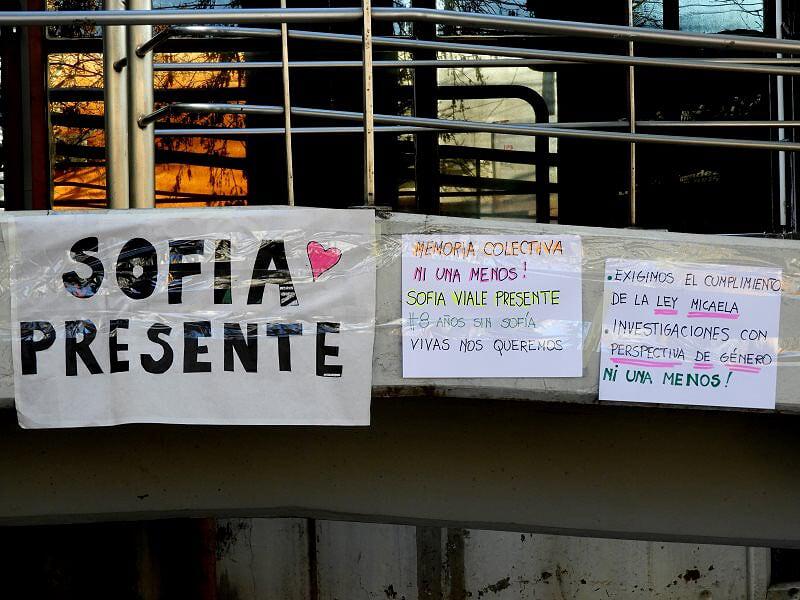 SOFIA
PRESENTE
MEMORIA COLECTIVA
NI UNA MENOS!
SOFIA VIALE PRESENTE
#8 AÑOS SIN SOFÍA
VIVAS NOS QUEREMOS
• EXIGIMOS EL CUMPLIMIENTO
DE LA LEY MICAELA
• INVESTIGACIONES CON
PERSPECTIVA DE GÉNERO
NI UNA MENOS!